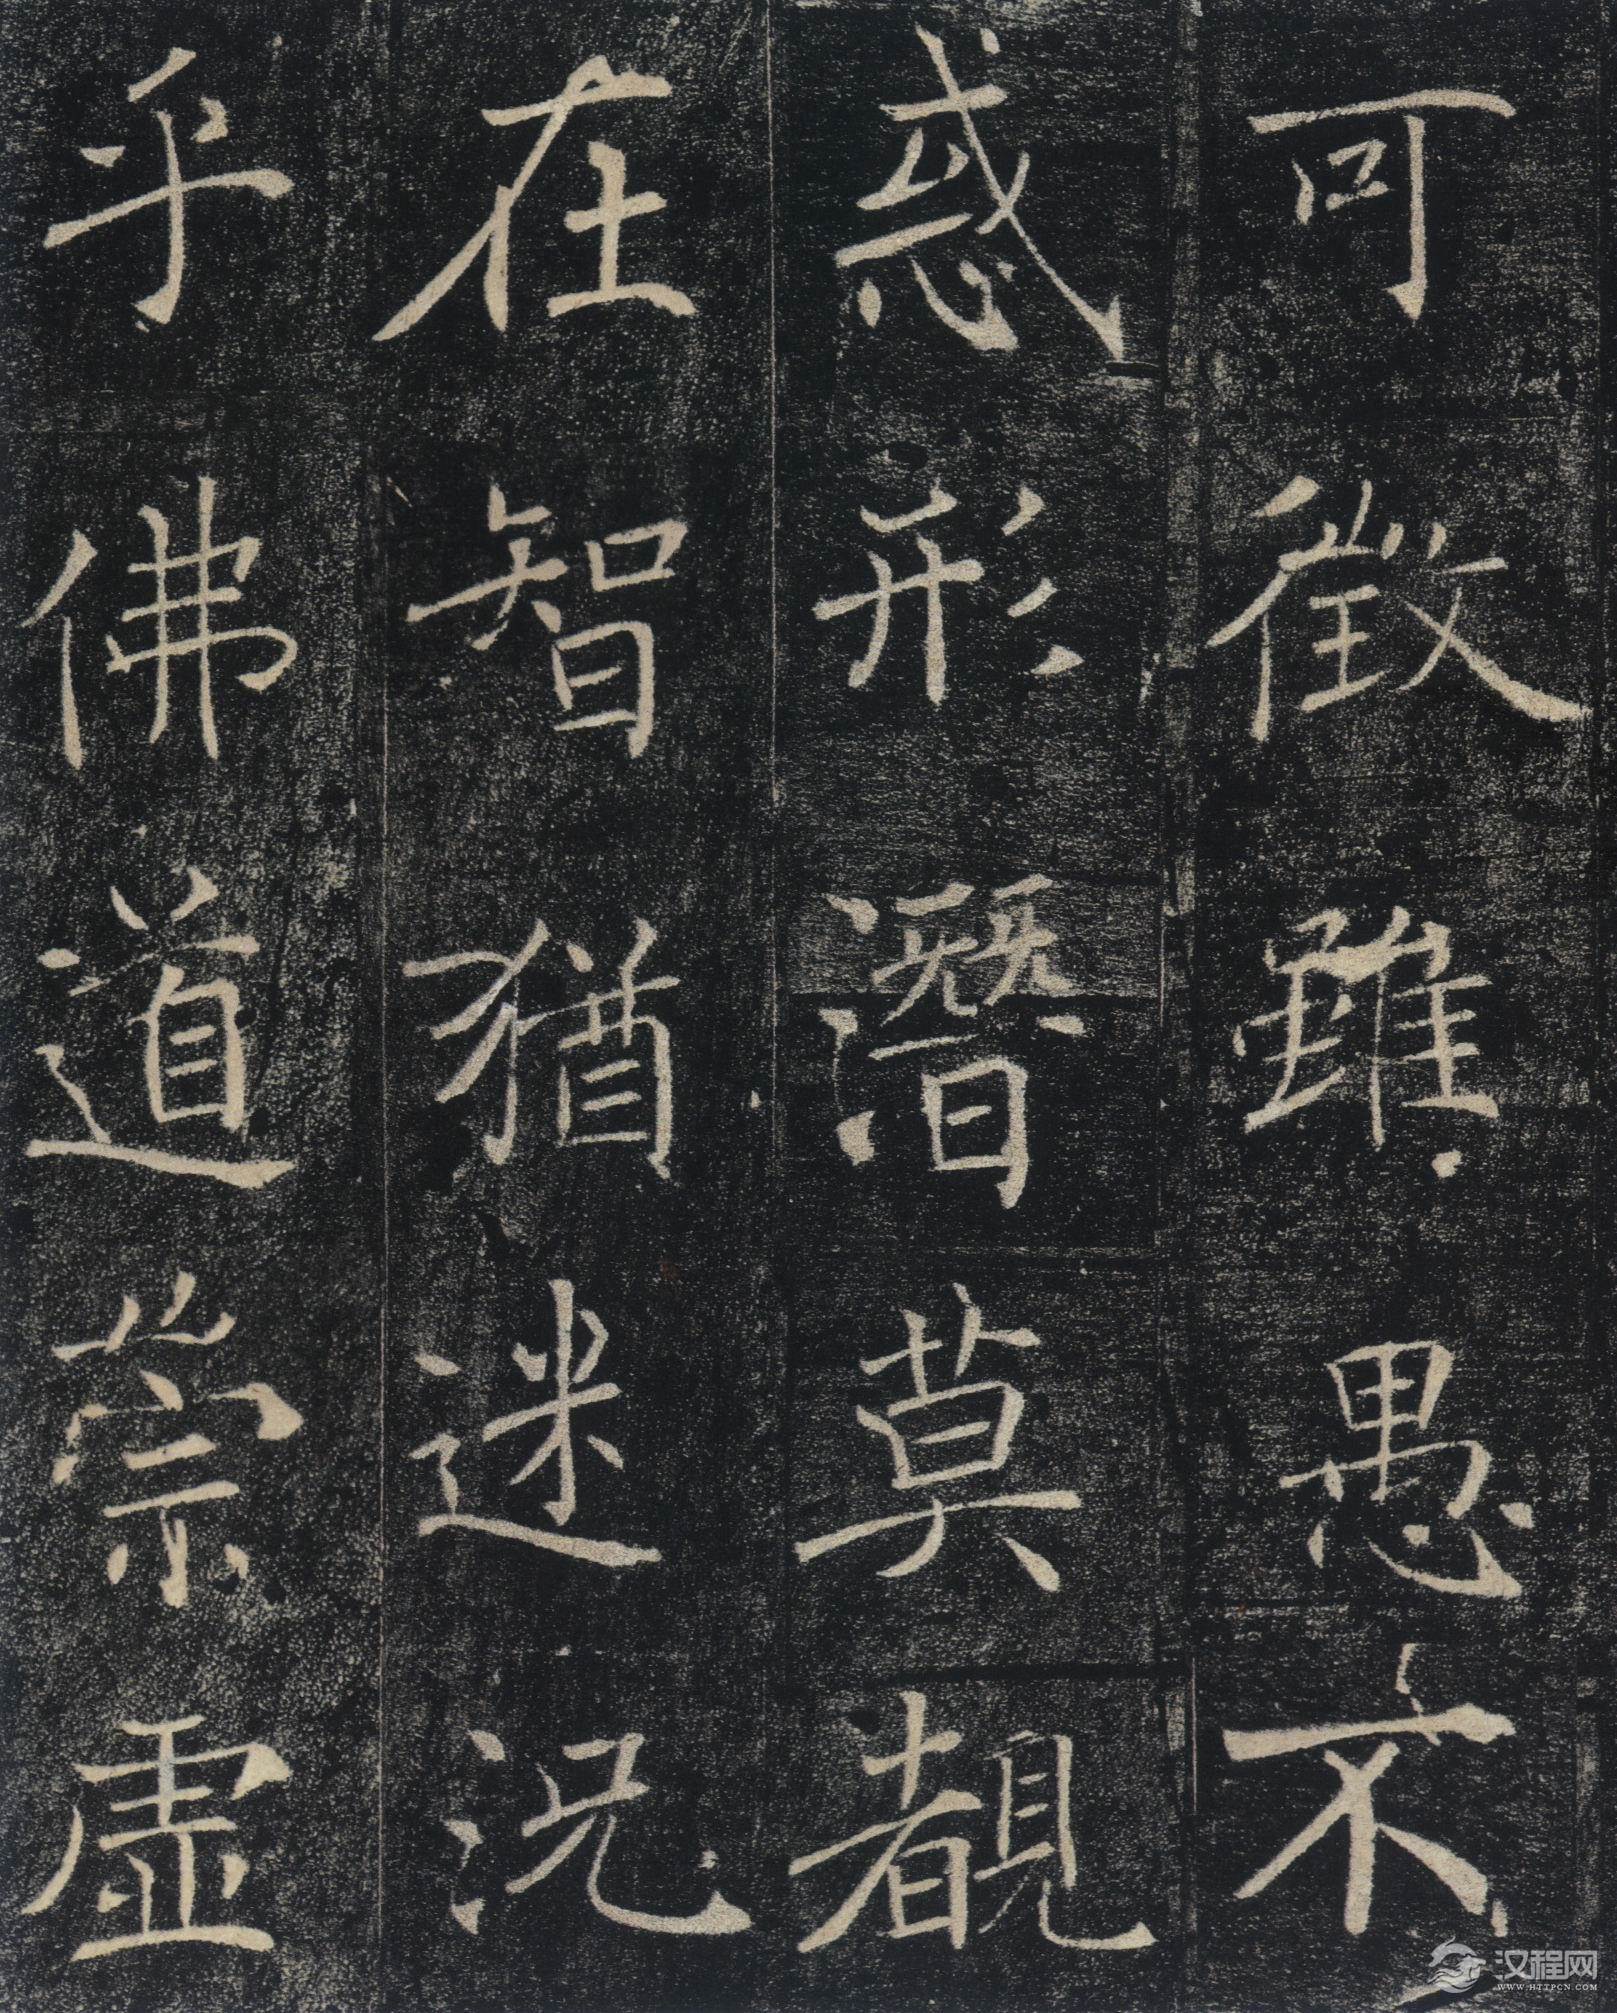 可徵雖愚不
惑形潛莫覩
在智猶迷況
乎佛道崇虛
汉程网
WWW.HTTPCN.COM